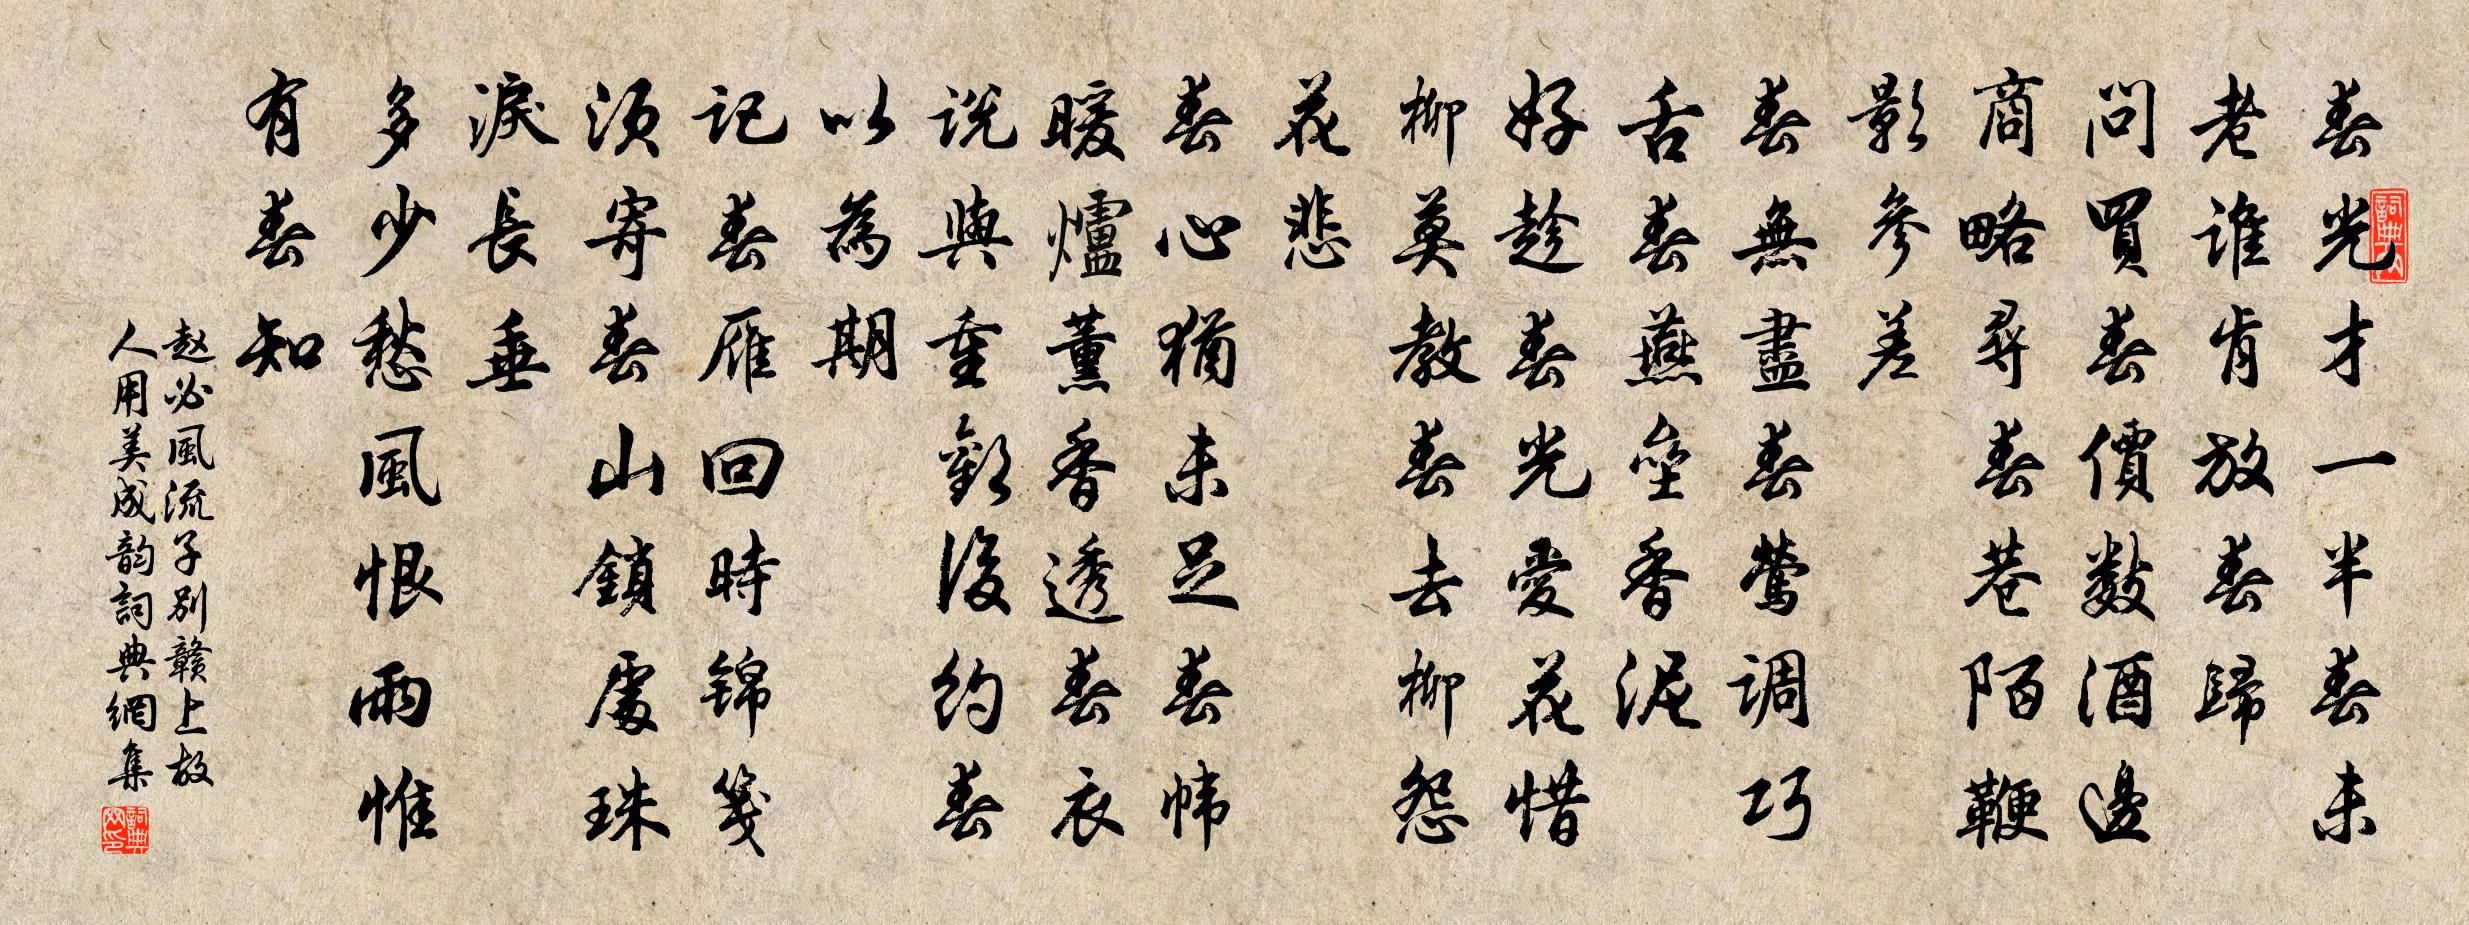 春光才一半春未
老誰肯放春歸
問買春價數酒邊
商略尋春巷陌鞭
影參差
春無盡春鶯調巧
舌春燕壘香泥
好趁春光愛花惜
柳莫教春去柳怨
花悲
春心猶未足春幃
暖爐薰香透春衣
說與重歡後約春
以為期
記春雁回時錦箋
須寄春山鎖處珠
淚長垂
多少愁風恨雨惟
有春知
赵必風流子别赣上故
人用美成韵詞典網集